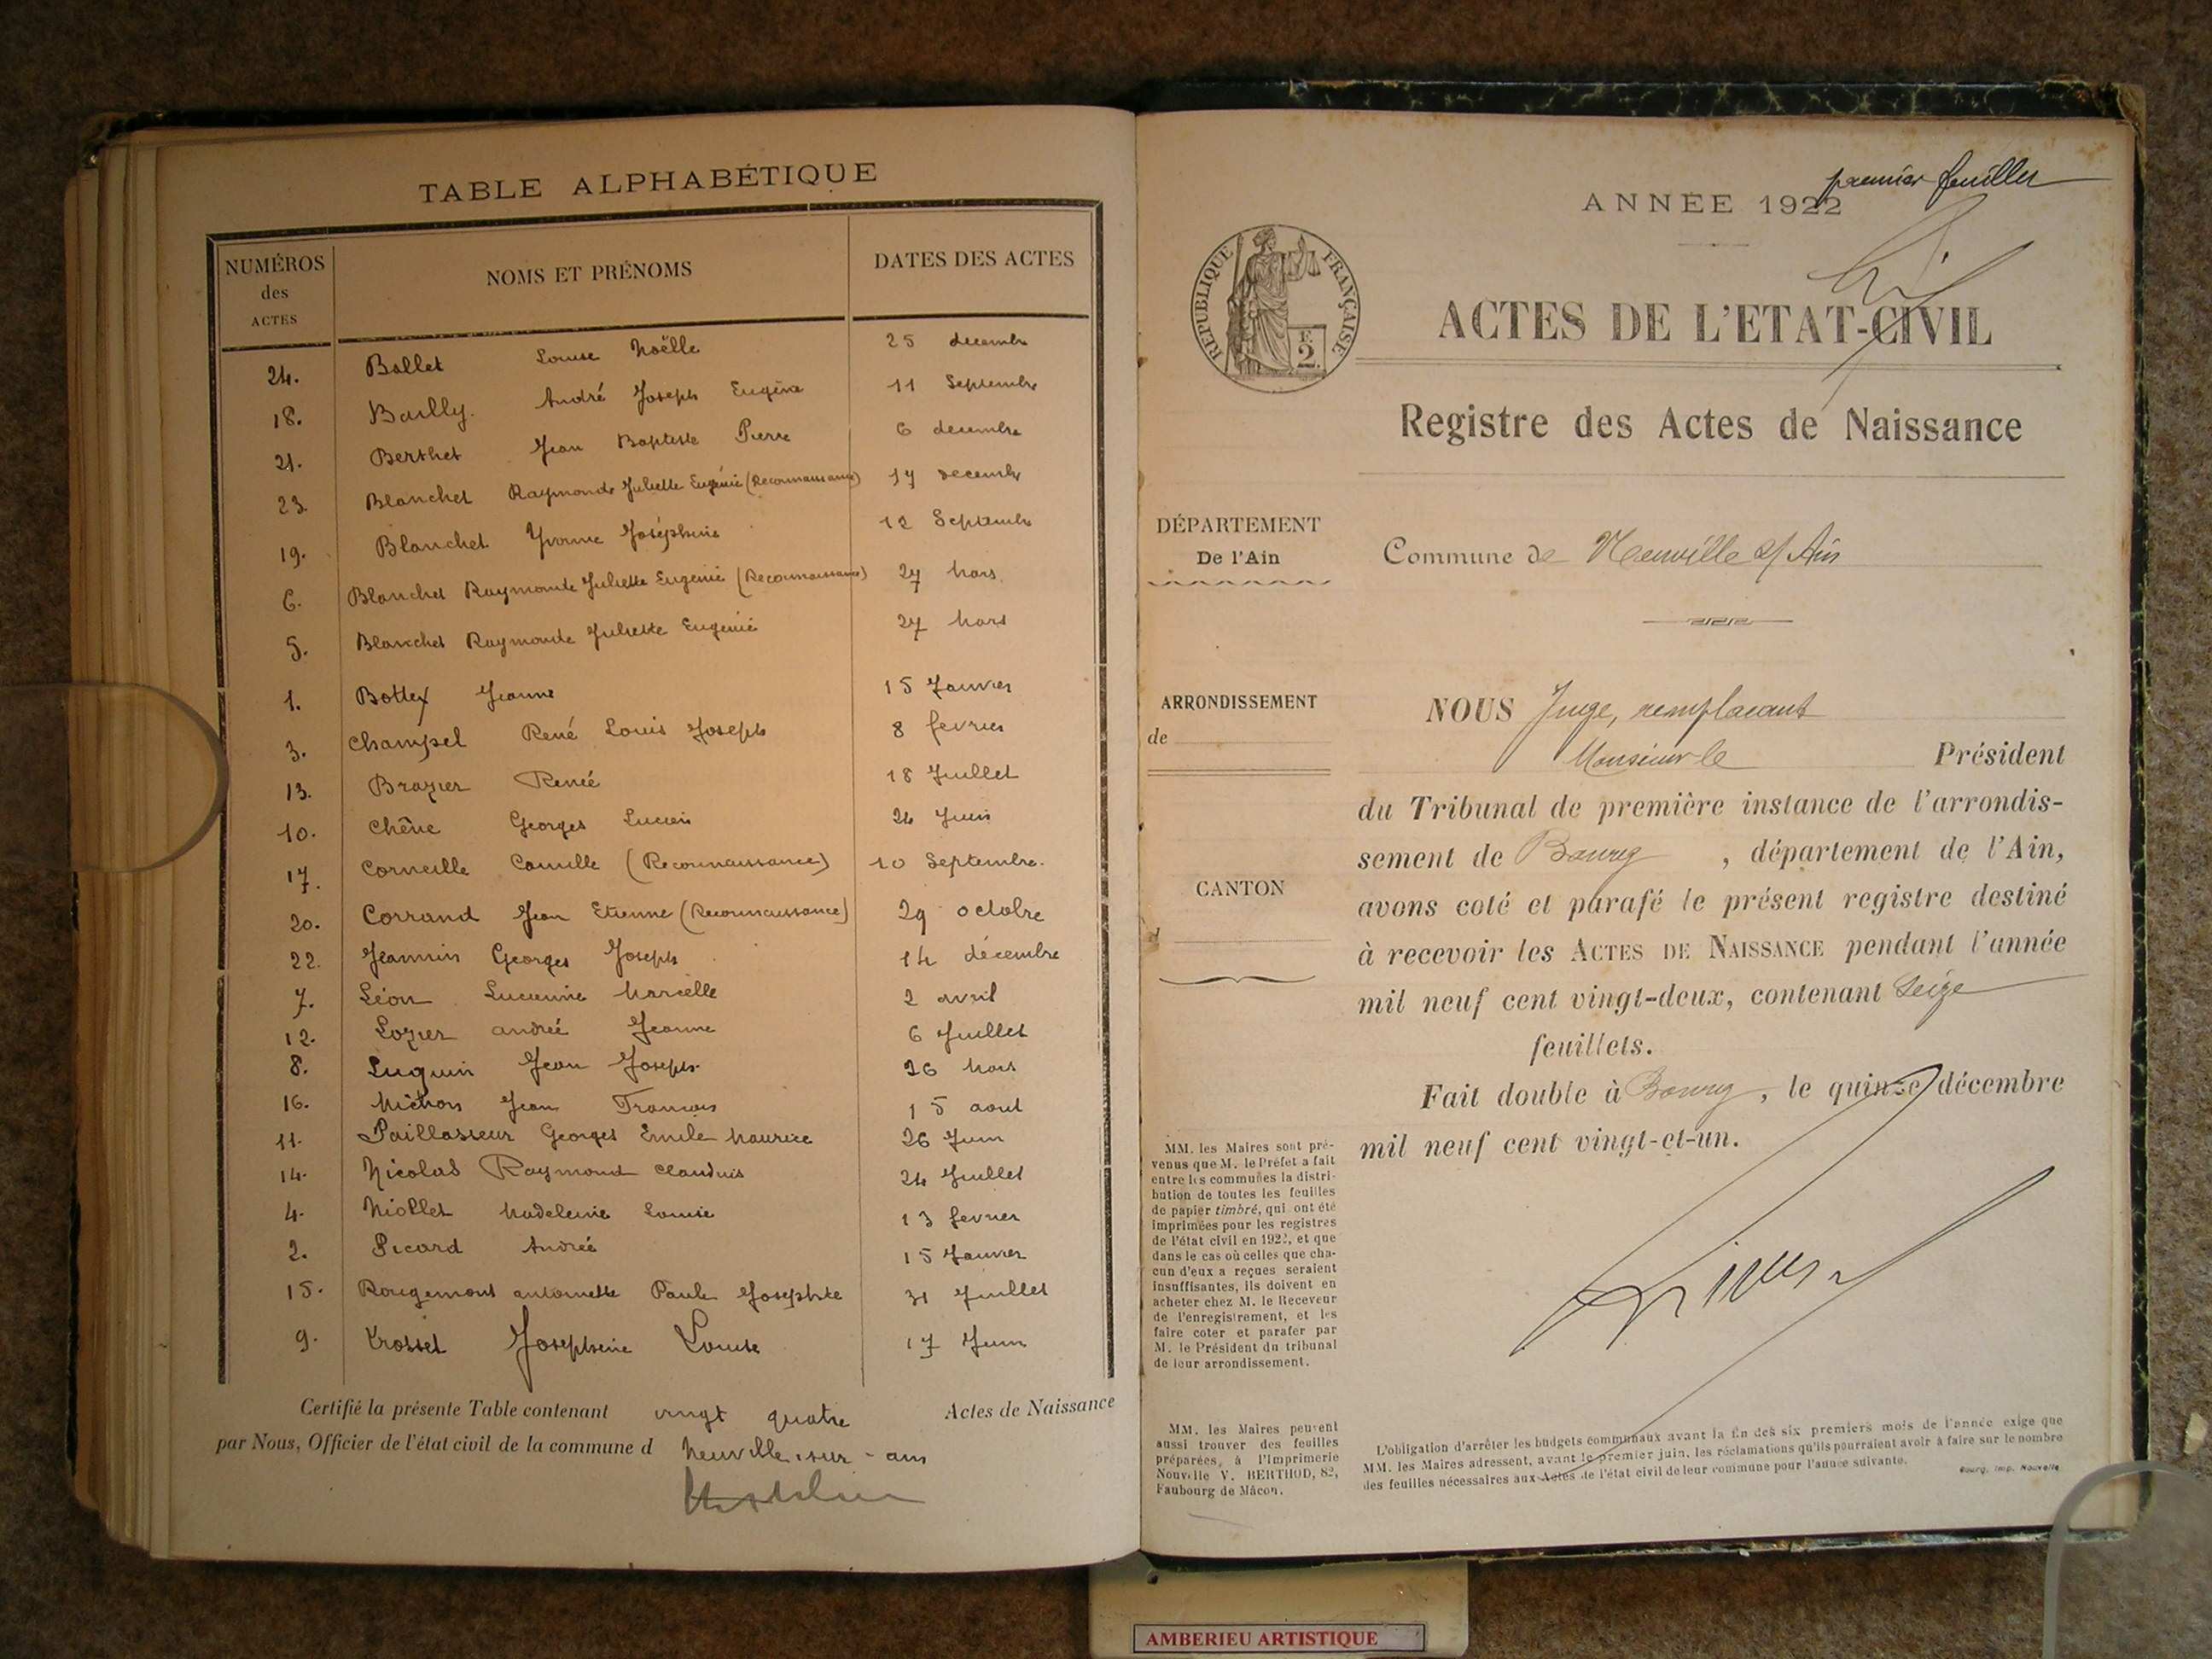 TABLE ALPHABÉTIQUE
NUMÉROS des ACTES
NOMS ET PRÉNOMS
DATES DES ACTES
24. Ballet Louise Noëlle 25 decembre
18. Bailly. André Joseph Eugène 11 Septembre
21. Berthet Jean Baptiste Pierre 6 decembre
23. Blanchet Raymonde Juliette Eugénie (Reconnaissance) 17 decembre
19. Blanchet Yvonne Joséphine 12 Septembre
6. Blanchet Raymonde Juliette Eugenie (Reconnaissance) 27 Mars
5. Blanchet Raymonde Juliette Eugénie 27 Mars
1. Bottex Jeanne 15 Janvier
3. Champel René Louis Joseph 8 fevrier
13. Brazier Renée 18 Juillet
10. Chêne Georges Lucien 24 Juin
17. Corneille Camille (Reconnaissance) 10 Septembre.
20. Corrand Jean Etienne (Reconnaissance) 29 octobre
22. Jeannin Georges Joseph 14 décembre
7. Léon Lucienne Marcelle 2 avril
12. Lozier andrée Jeanne 6 Juillet
8. Luquin Jean Joseph 26 Mars
16. Michon Jean François 15 aout
11. Paillasseur Georges Emile Maurice 26 Juin
14. Nicolas Raymond Claudius 24 Juillet
4. Niollet Madeleine Louise 13 fevrier
2. Picard Andrée 15 Janvier
15. Rougemont antoinette Paule 31 Juillet
9. Josephine Louise 17 Juin
Certifié la présente Table contenant vingt quatre Actes de Naissance
par Nous, Officier de l'état civil de la commune d Neuville-sur-ain
premier feuillet
ANNÉE 1922
RÉPUBLIQUE FRANÇAISE
2 F.
ACTES DE L'ETAT-CIVIL
Registre des Actes de Naissance
DÉPARTEMENT
De l'Ain
Commune de Neuville s/ Ain
ARRONDISSEMENT
de
CANTON
d
NOUS Juge, remplacant
Monsieur le Président
du Tribunal de première instance de l'arrondis-
sement de Bourg, département de l'Ain,
avons coté et parafé le présent registre destiné
à recevoir les ACTES DE NAISSANCE pendant l'année
mil neuf cent vingt-deux, contenant Seize
feuillets.
Fait double à Bourg, le quinze décembre
mil neuf cent vingt-et-un.
MM. les Maires sont pré-
venus que M. le Préfet a fait
entre les communes la distri-
bution de toutes les feuilles
de papier timbré, qui ont été
imprimées pour les registres
de l'état civil en 1922, et que
dans le cas où celles que cha-
cun d'eux a reçues seraient
insuffisantes, ils doivent en
acheter chez M. le Receveur
de l'enregistrement, et les
faire coter et parafer par
M. le Président du tribunal
de leur arrondissement.
MM. les Maires peuvent
aussi trouver des feuilles
préparées, à l'Imprimerie
Nouvelle V. BERTHOD, 82,
Faubourg de Mâcon.
L'obligation d'arrêter les budgets communaux avant la fin des six premiers mois de l'année exige que
MM. les Maires adressent, avant le premier juin, les réclamations qu'ils pourraient avoir à faire sur le nombre
des feuilles nécessaires aux Actes de l'état civil de leur commune pour l'année suivante.
Bourg, Imp. Nouvelle
AMBERIEU ARTISTIQUE